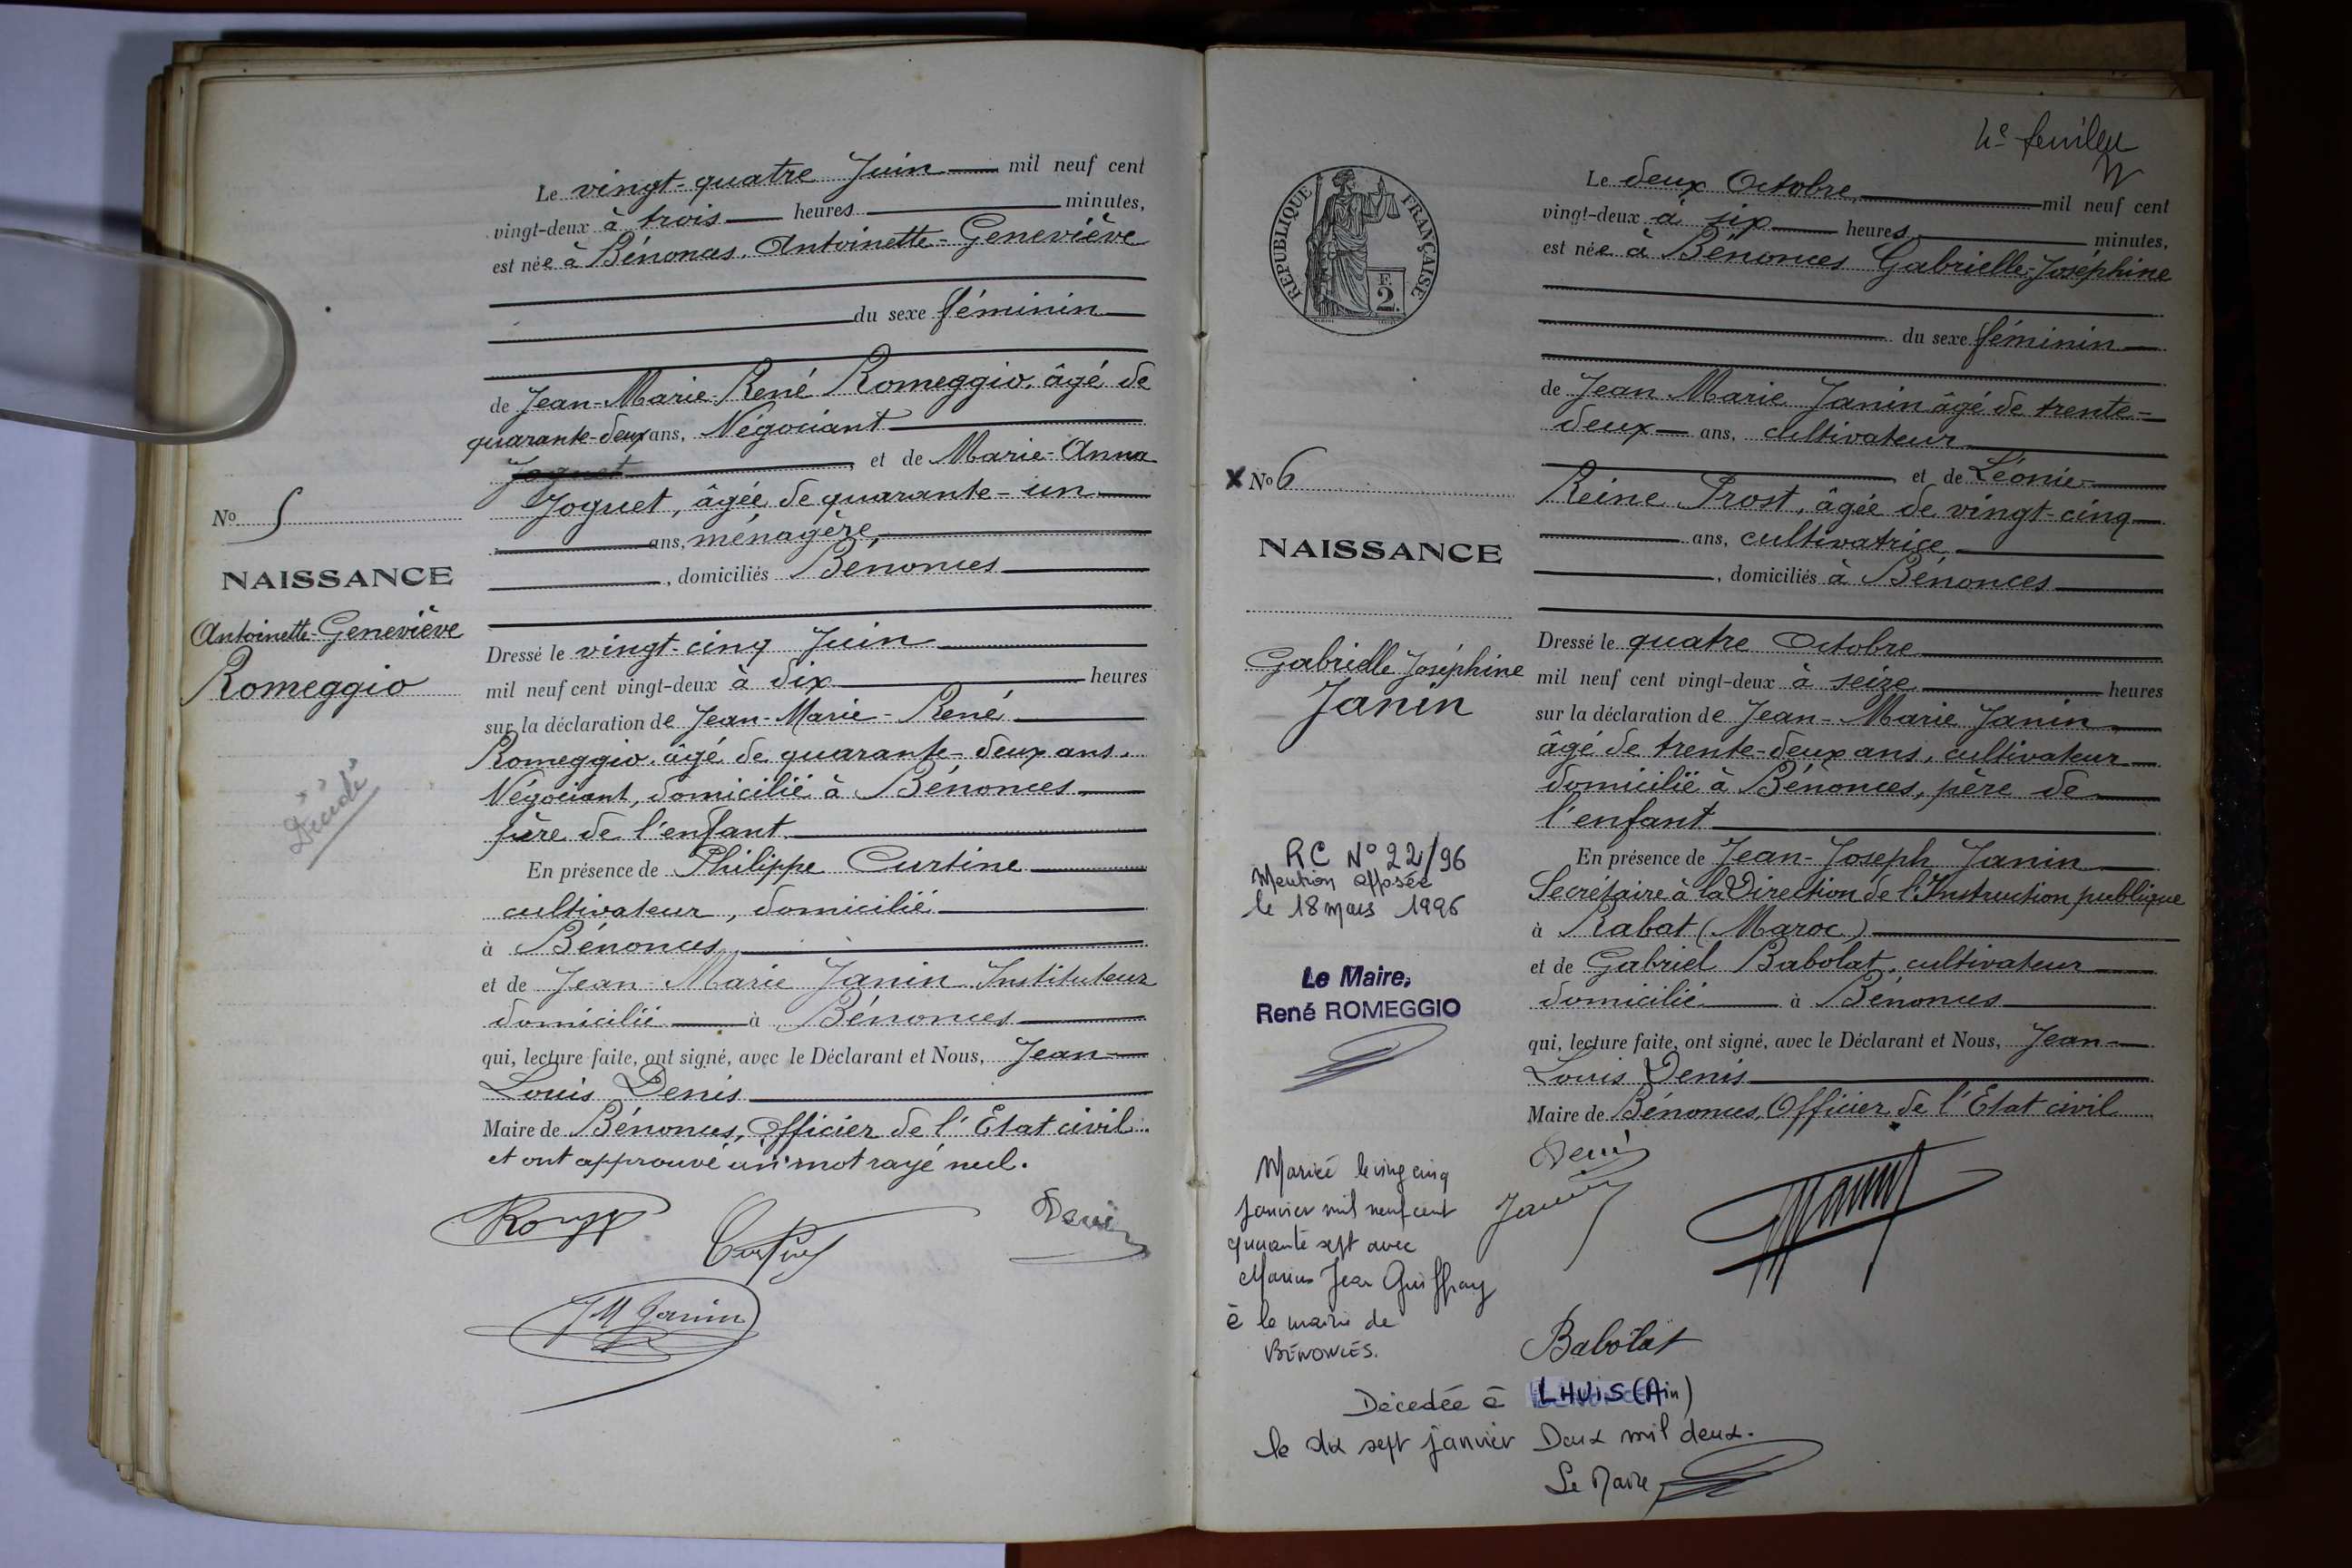 Le vingt-quatre Juin mil neuf cent
vingt-deux à trois heures minutes,
est née à Bénonces, Antoinette-Geneviève
du sexe féminin
de Jean-Marie-René Romeggio, âgé de
quarante-deux ans, Négociant
Joguet et de Marie-Anna
Joguet, âgée de quarante-un
ans, ménagère
, domiciliés Bénonces
No 5
NAISSANCE
Antoinette-Geneviève
Romeggio
Décédé
Dressé le vingt-cinq Juin
mil neuf cent vingt-deux à dix heures
sur la déclaration de Jean-Marie-René
Romeggio, âgé de quarante-deux ans,
Négociant, domicilié à Bénonces
père de l'enfant
En présence de Philippe Curtine
cultivateur, domicilié
à Bénonces
et de Jean Marie Janin Instituteur
domicilié à Bénonces
qui, lecture faite, ont signé, avec le Déclarant et Nous, Jean-
Louis Denis
Maire de Bénonces, Officier de l'Etat civil
et ont approuvé un mot rayé nul.
Denis
JM Janin
4e feuillet
RÉPUBLIQUE FRANÇAISE
F.
2.
Le deux Octobre, mil neuf cent
vingt-deux à six heures minutes,
est née à Bénonces Gabrielle-Joséphine
du sexe féminin
de Jean Marie Janin âgé de trente-
deux ans, cultivateur
et de Léonie-
Reine Prost, âgée de vingt-cinq
ans, cultivatrice
, domiciliés à Bénonces
X No 6
NAISSANCE
Gabrielle Joséphine
Janin
Dressé le quatre Octobre
mil neuf cent vingt-deux à seize heures
sur la déclaration de Jean-Marie Janin
âgé de trente-deux ans, cultivateur
domicilié à Bénonces, père de
l'enfant
En présence de Jean-Joseph Janin
Secrétaire à la Direction de l'Instruction publique
à Rabat (Maroc)
et de Gabriel Babolat, cultivateur
domicilié à Bénonces
qui, lecture faite, ont signé, avec le Déclarant et Nous, Jean-
Louis Denis
Maire de Bénonces, Officier de l'Etat civil
RC No 22/96
Mention apposée
le 18 mars 1996
Le Maire,
René ROMEGGIO
Mariée le ving cinq
janvier mil neuf cent
quarante sept avec
Marius Jean Guiffray
à la mairie de
BÉNONCES.
Denis
Janin
Babolat
Décédée à LHUIS (Ain)
le dix sept janvier Deux mil deux.
Le Maire